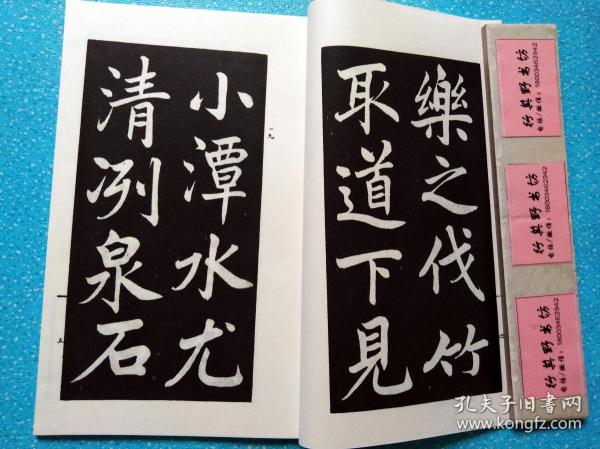 樂之伐竹
取道下見
小潭水尤
清冽泉石
一九
行其野书坊
电话/微信：18003462942
行其野书坊
电话/微信：18003462942
行其野书坊
电话/微信：18003462942
孔夫子旧书网
www.kongfz.com